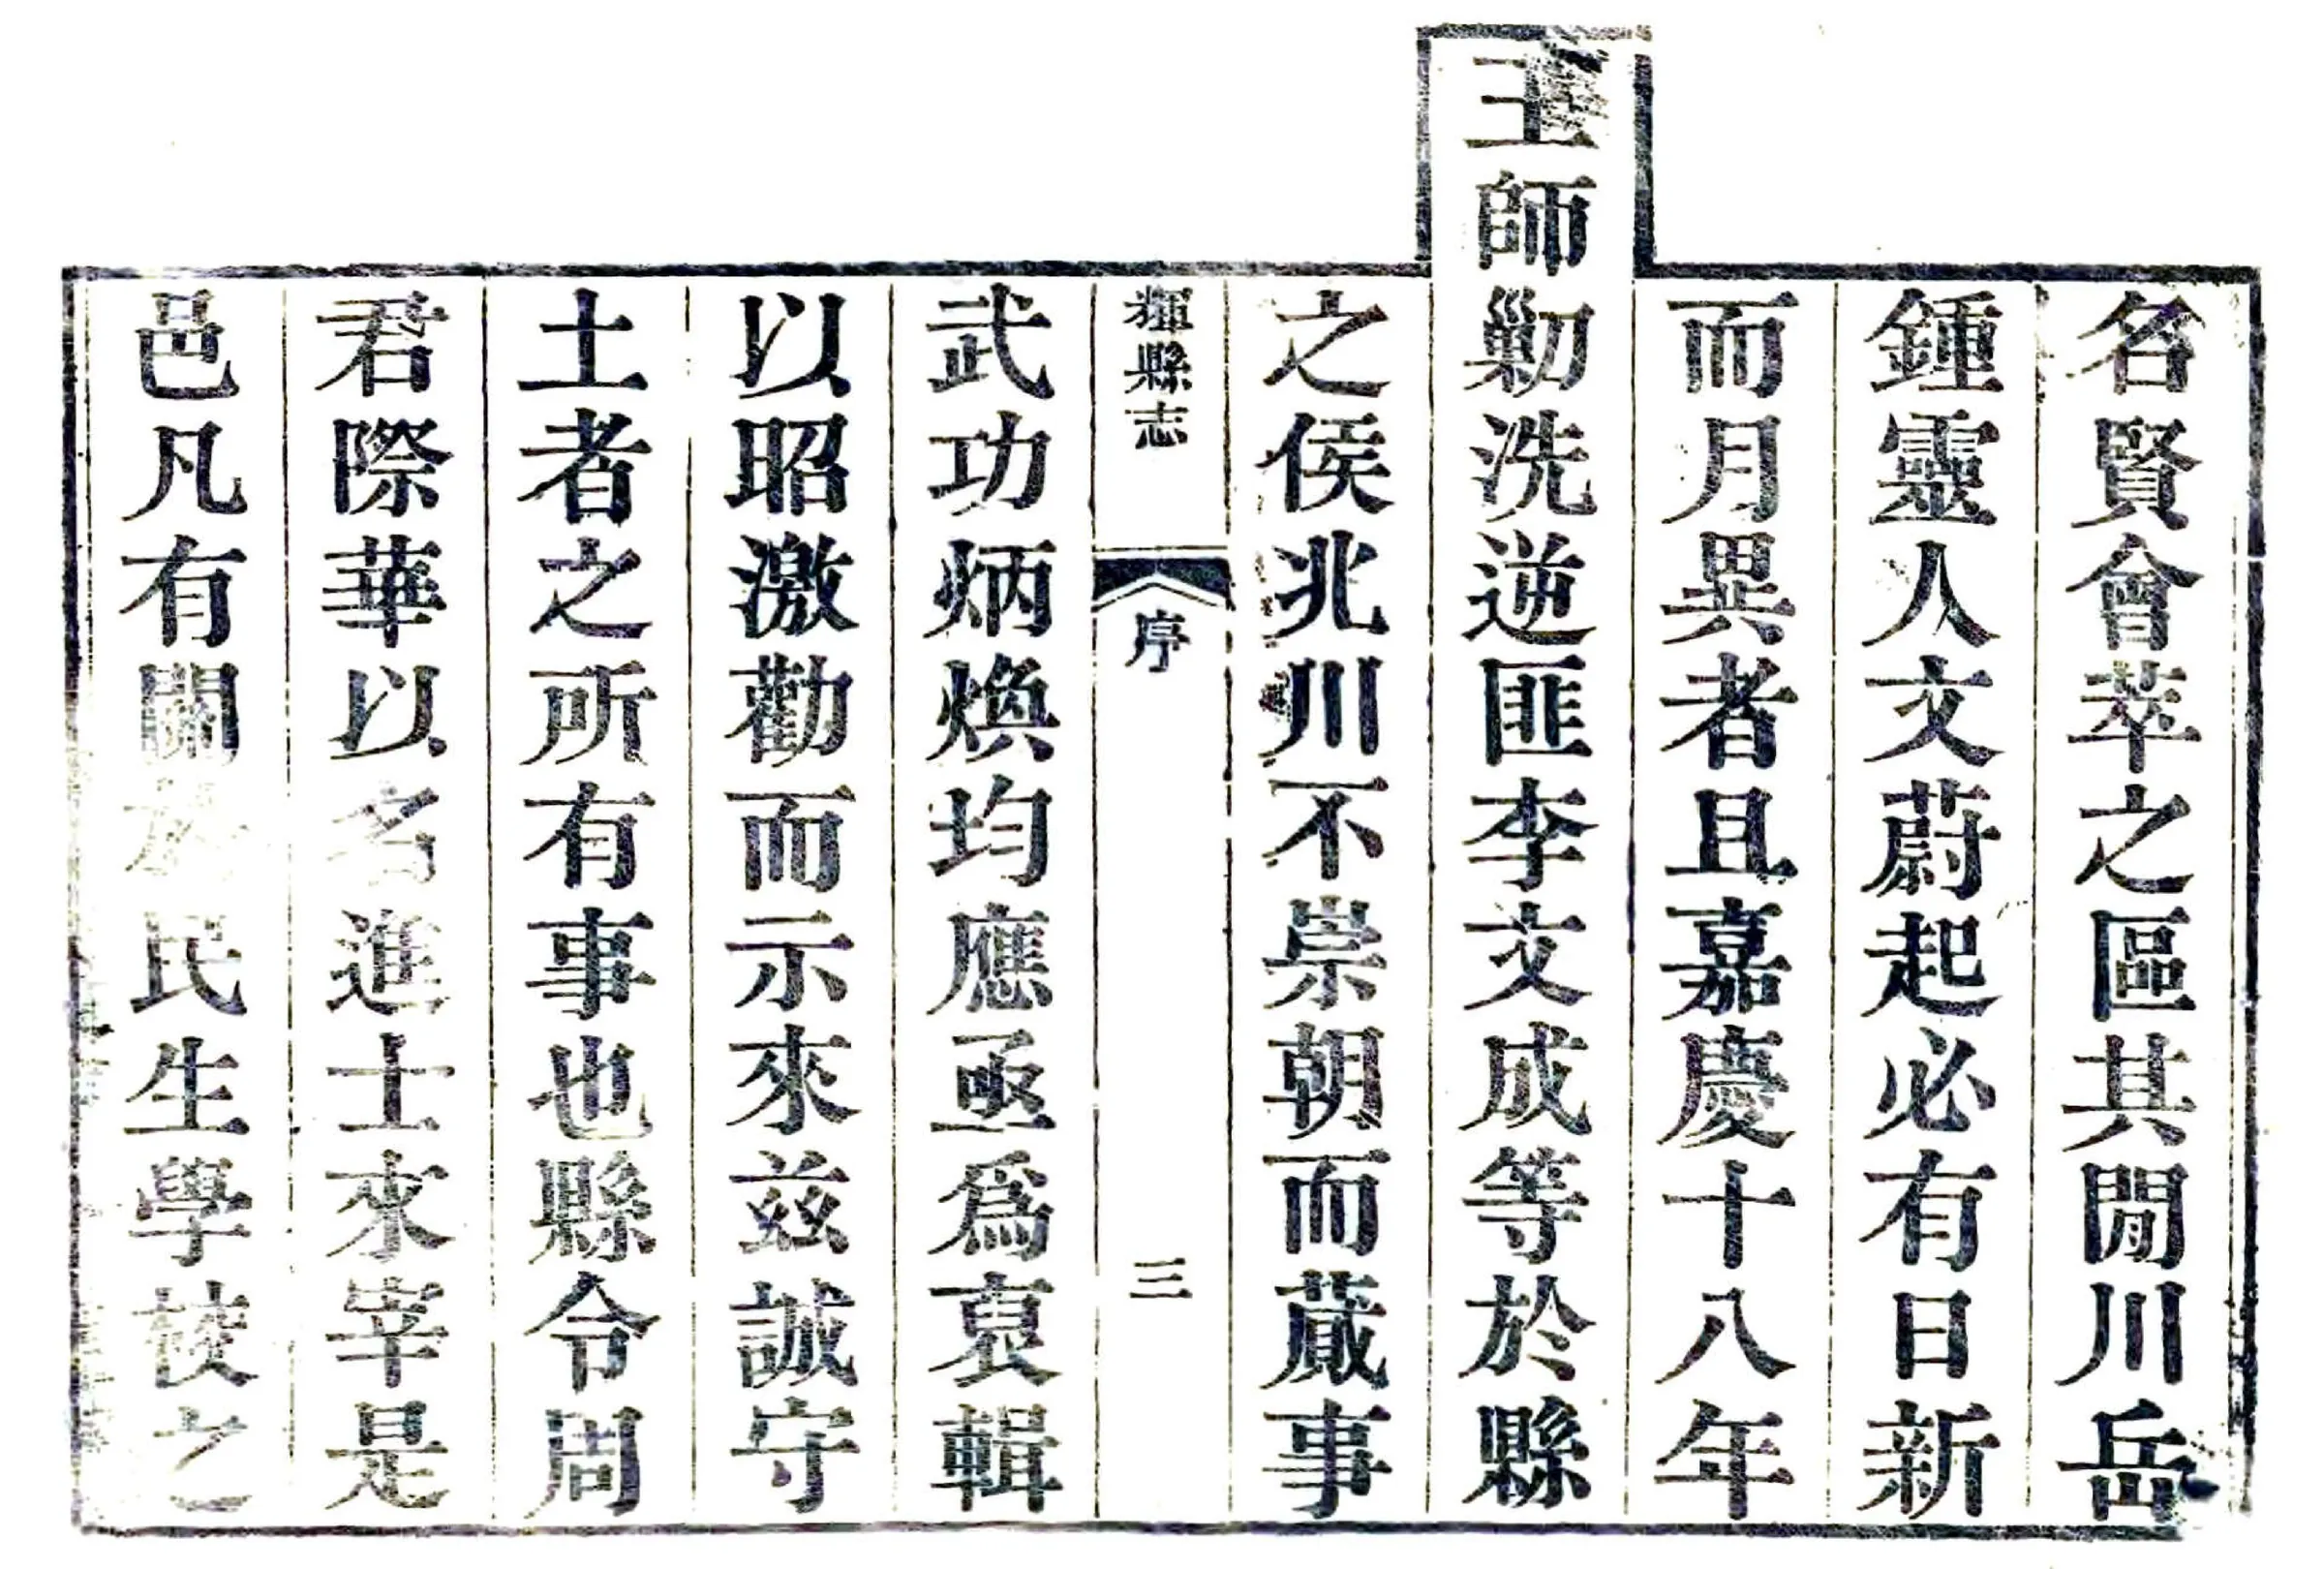 名賢會萃之區其閒川岳
鍾靈人文蔚起必有日新
而月異者且嘉慶十八年
王師勦洗逆匪李文成等於縣
之侯兆川不崇朝而蕆事
輝縣志 序 三
武功炳煥均應亟爲裒輯
以昭激勸而示來兹誠守
土者之所有事也縣令周
君際華以名進士來宰是
邑凡有關於民生學校之